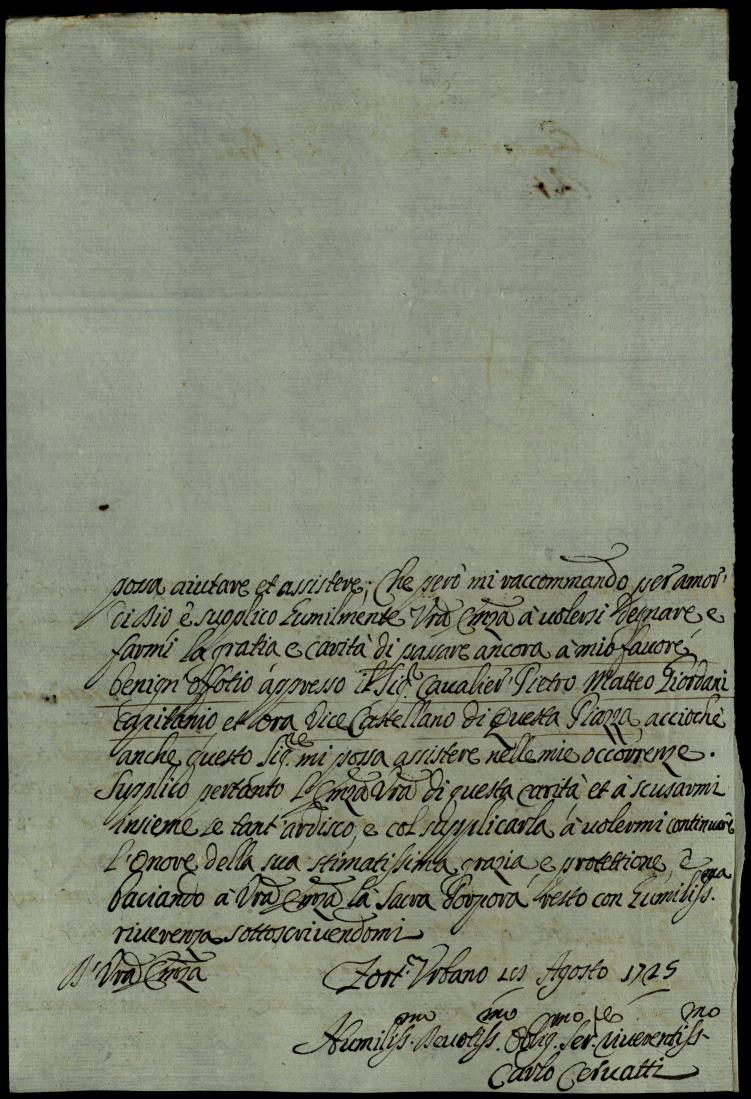 possa aiutare et assistere; Che però mi raccommando per amor'
di Dio è supplico humilmente Vrã Emzã à volersi degnare e
farmi la gratia e carità di passare ancora à mio favore,
benign' offitio appresso il Sig.r Cavalier Pietro Matteo Giordani
Capitanio et hora Vice Castellano di questa Piazza, acciochè
anche questo Sig.re mi possa assistere nelle mie occorrenze.
Supplico pertanto l'Emzã Vrã di questa carità et à scusarmi
insieme se tant' ardisco, e col supplicarla à volermi continuare
l'Onore della sua stimatissima grazia e protettione, è
baciando à Vrã Emzã la Sacra Porpora resto con humiliss.ma
riverenza sottoscrivendomi
D' Vrã Emzã Fort' Urbano Agosto 1725
Humiliss.mo Devotiss.mo Oblig.mo Ser.re riverentiss.mo
Carlo Cervatti